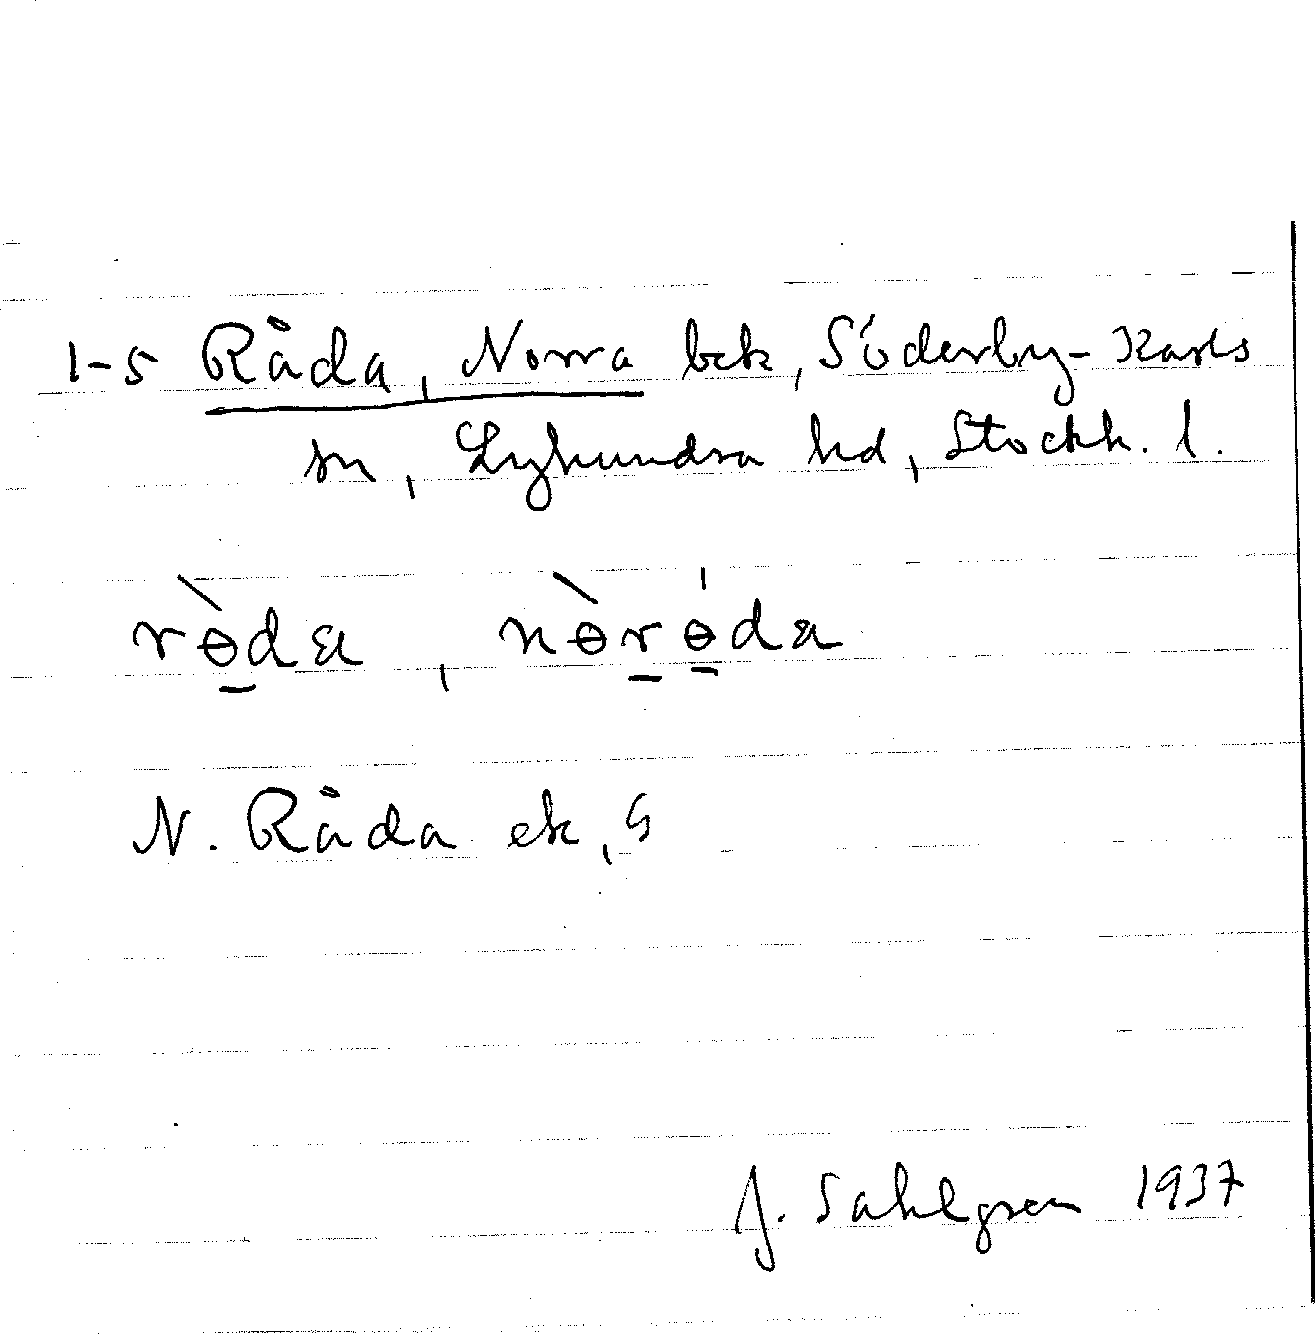 1-5 Råda, Norra bek, Söderby-Karls
sn, Lyhundra hd, Stockh. l.
rɵ̀da, nɵ̀rɵ́da
N. Råda ek, 5
J. Sahlgren 1937